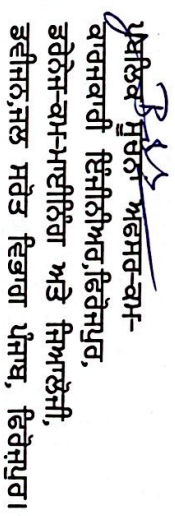 ਪਬਲਿਕ ਸੂਚਨਾ ਅਫਸਰ-ਕਮ-
ਕਾਰਜਕਾਰੀ ਇੰਜੀਨੀਅਰ,ਫਿਰੋਜ਼ਪੁਰ,
ਡਰੇਨੇਜ-ਕਮ-ਮਾਈਨਿੰਗ ਅਤੇ ਜਿਆਲੋਜੀ,
ਡਵੀਜਨ,ਜਲ ਸਰੋਤ ਵਿਭਾਗ ਪੰਜਾਬ, ਫਿਰੋਜਪੁਰ।